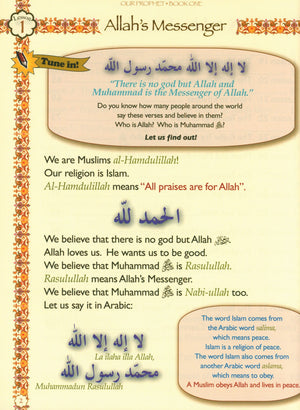 OUR PROPHET • BOOK ONE
Lesson
1
Allah's Messenger
Tune in!
لا إله إلا الله محمد رسول الله
"There is no god but Allah and
Muhammad is the Messenger of Allah."
Do you know how many people around the world
say these verses and believe in them?
Who is Allah? Who is Muhammad ﷺ?
Let us find out!
We are Muslims al-Hamdulillah!
Our religion is Islam.
Al-Hamdulillah means "All praises are for Allah".
الحمد لله
We believe that there is no god but Allah
Allah loves us. He wants us to be good.
We believe that Muhammad ﷺ is Rasulullah.
Rasulullah means Allah's Messenger.
We believe that Muhammad ﷺ is Nabi-ullah too.
Let us say it in Arabic:
لا إله إلا الله
La ilaha illa Allah,
محمد رسول الله
Muhammadun Rasulullah
The word Islam comes from
the Arabic word salima,
which means peace.
Islam is a religion of peace.
The word Islam also comes from
another Arabic word aslama,
which means to obey.
A Muslim obeys Allah and lives in peace.
2